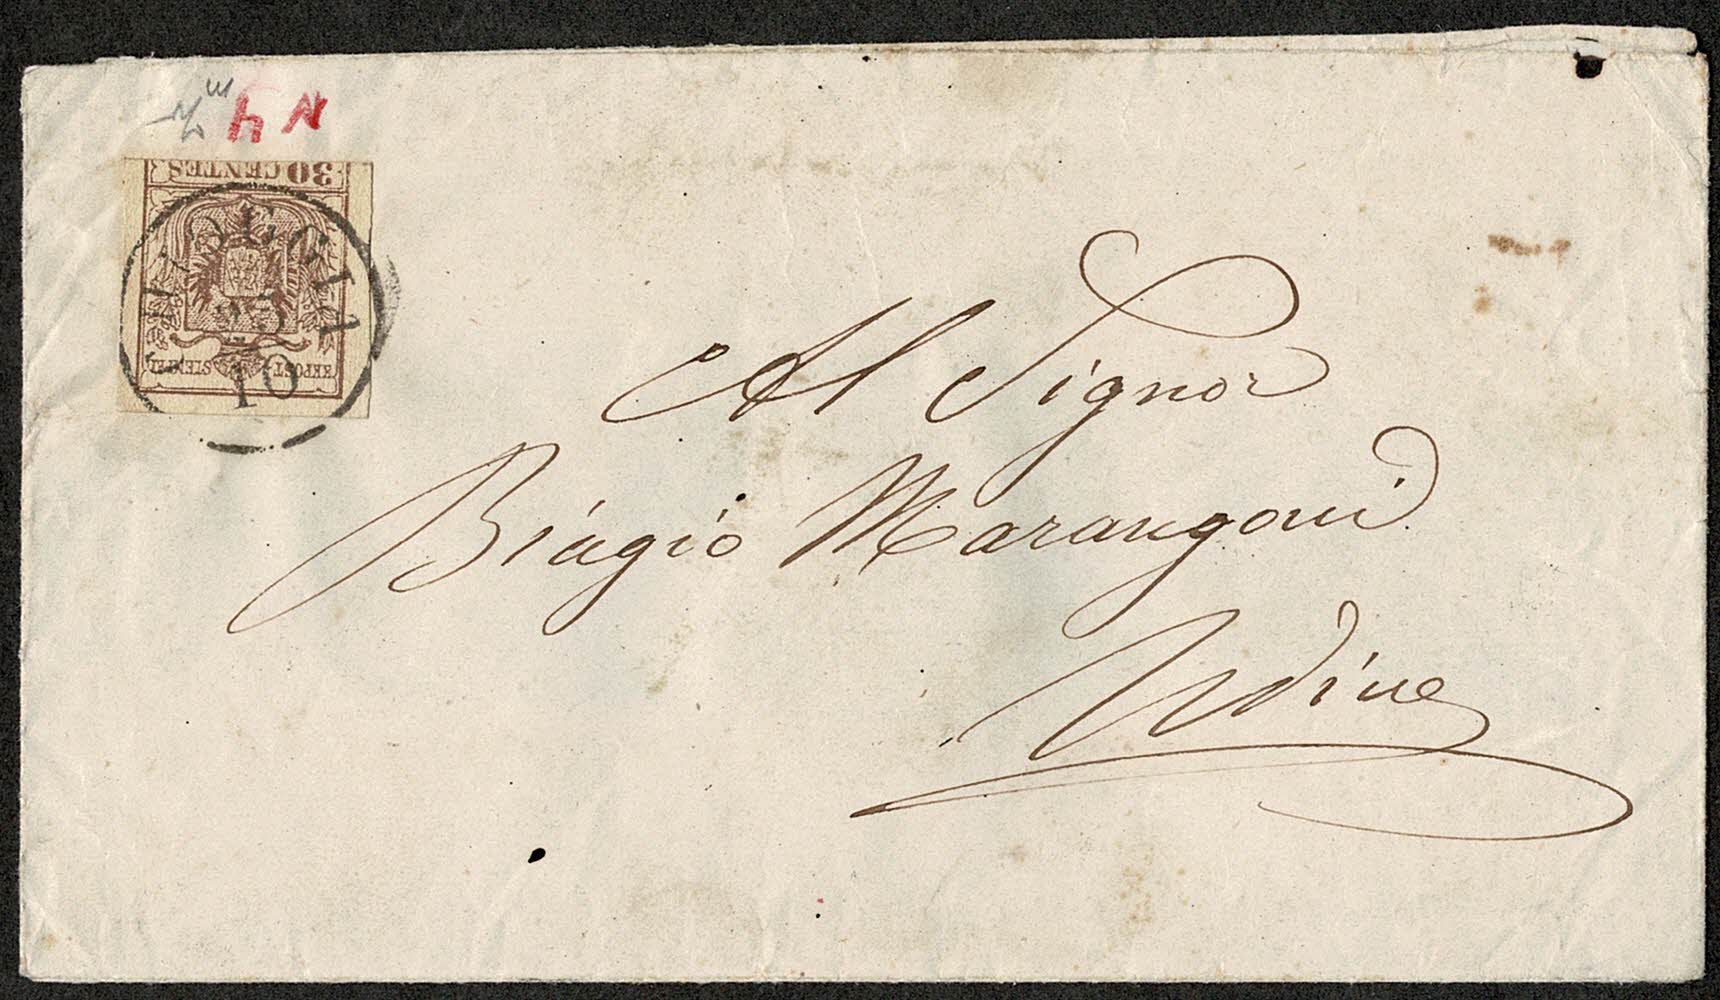 30 CENTES
KKPOST-STEMPEL
CHIOGGIA
25
10
Al Signor
Biagio Marangoni
Udine